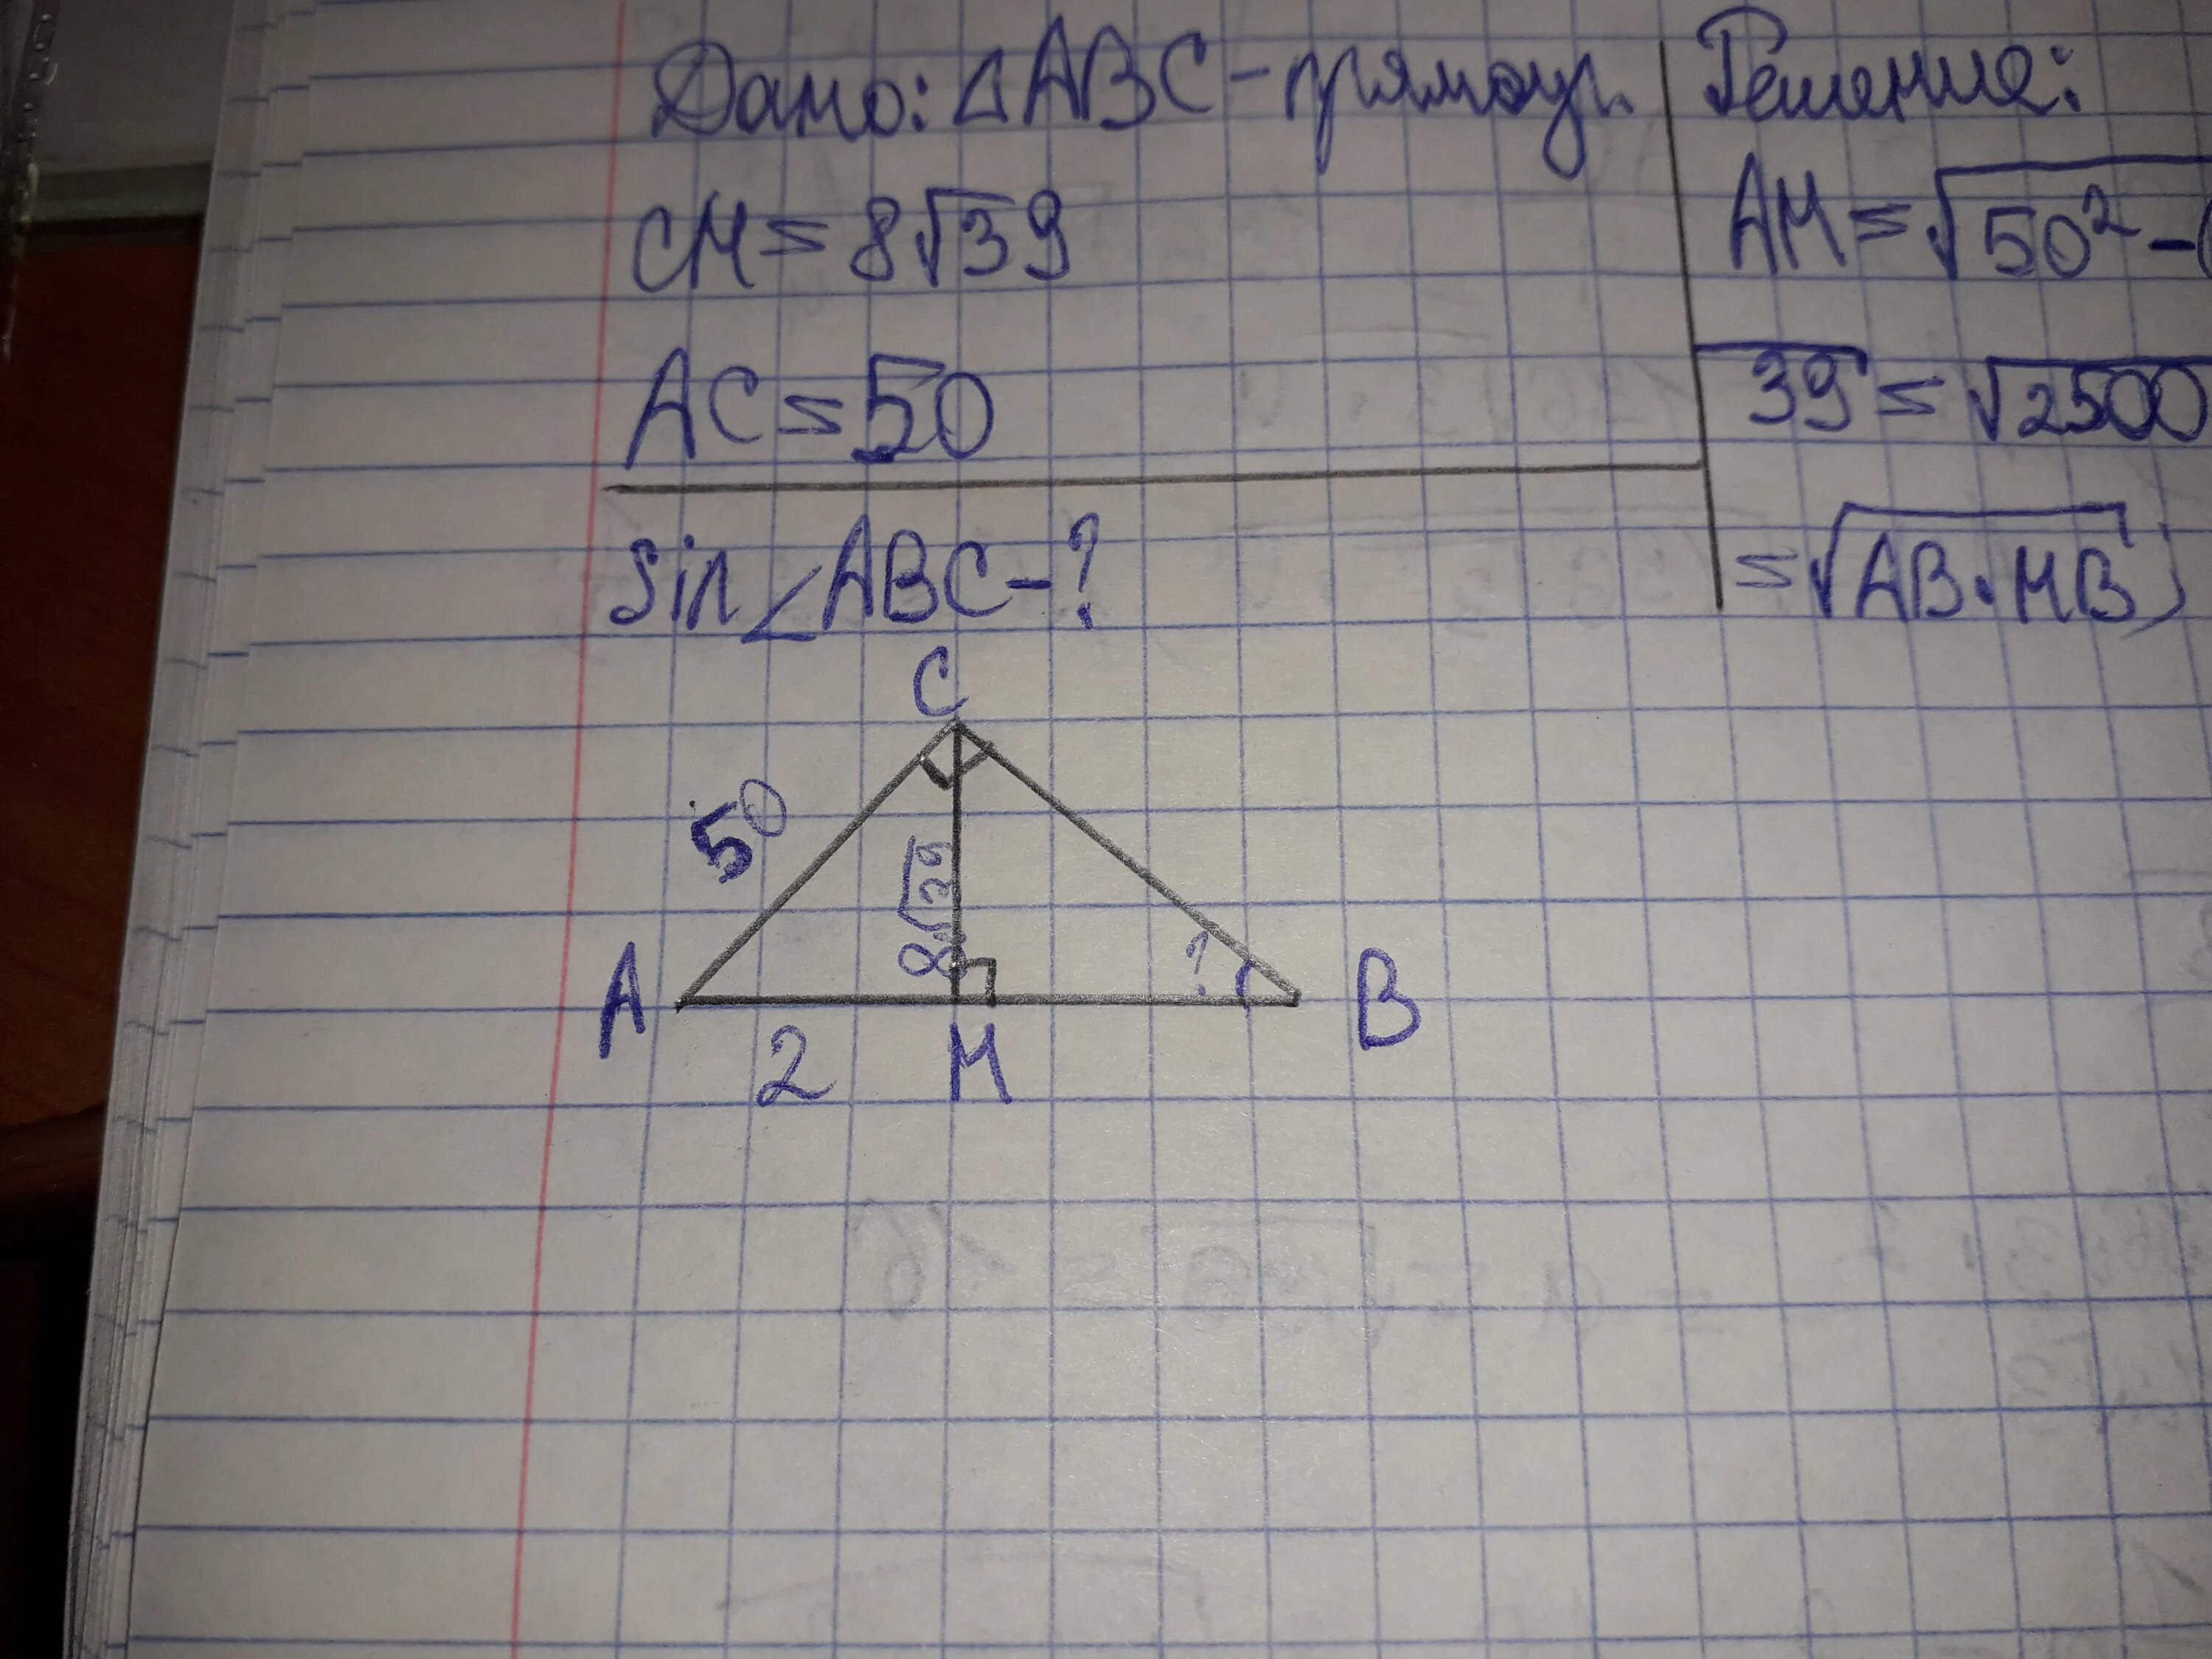 Дано: △ABC - прямоуг.
CM = 8√39
AC = 50
sin∠ABC - ?
Решение:
AM = √50² - (
39 = √2500
= √AB·MB)
C
50
8√39
?
A
B
2
M